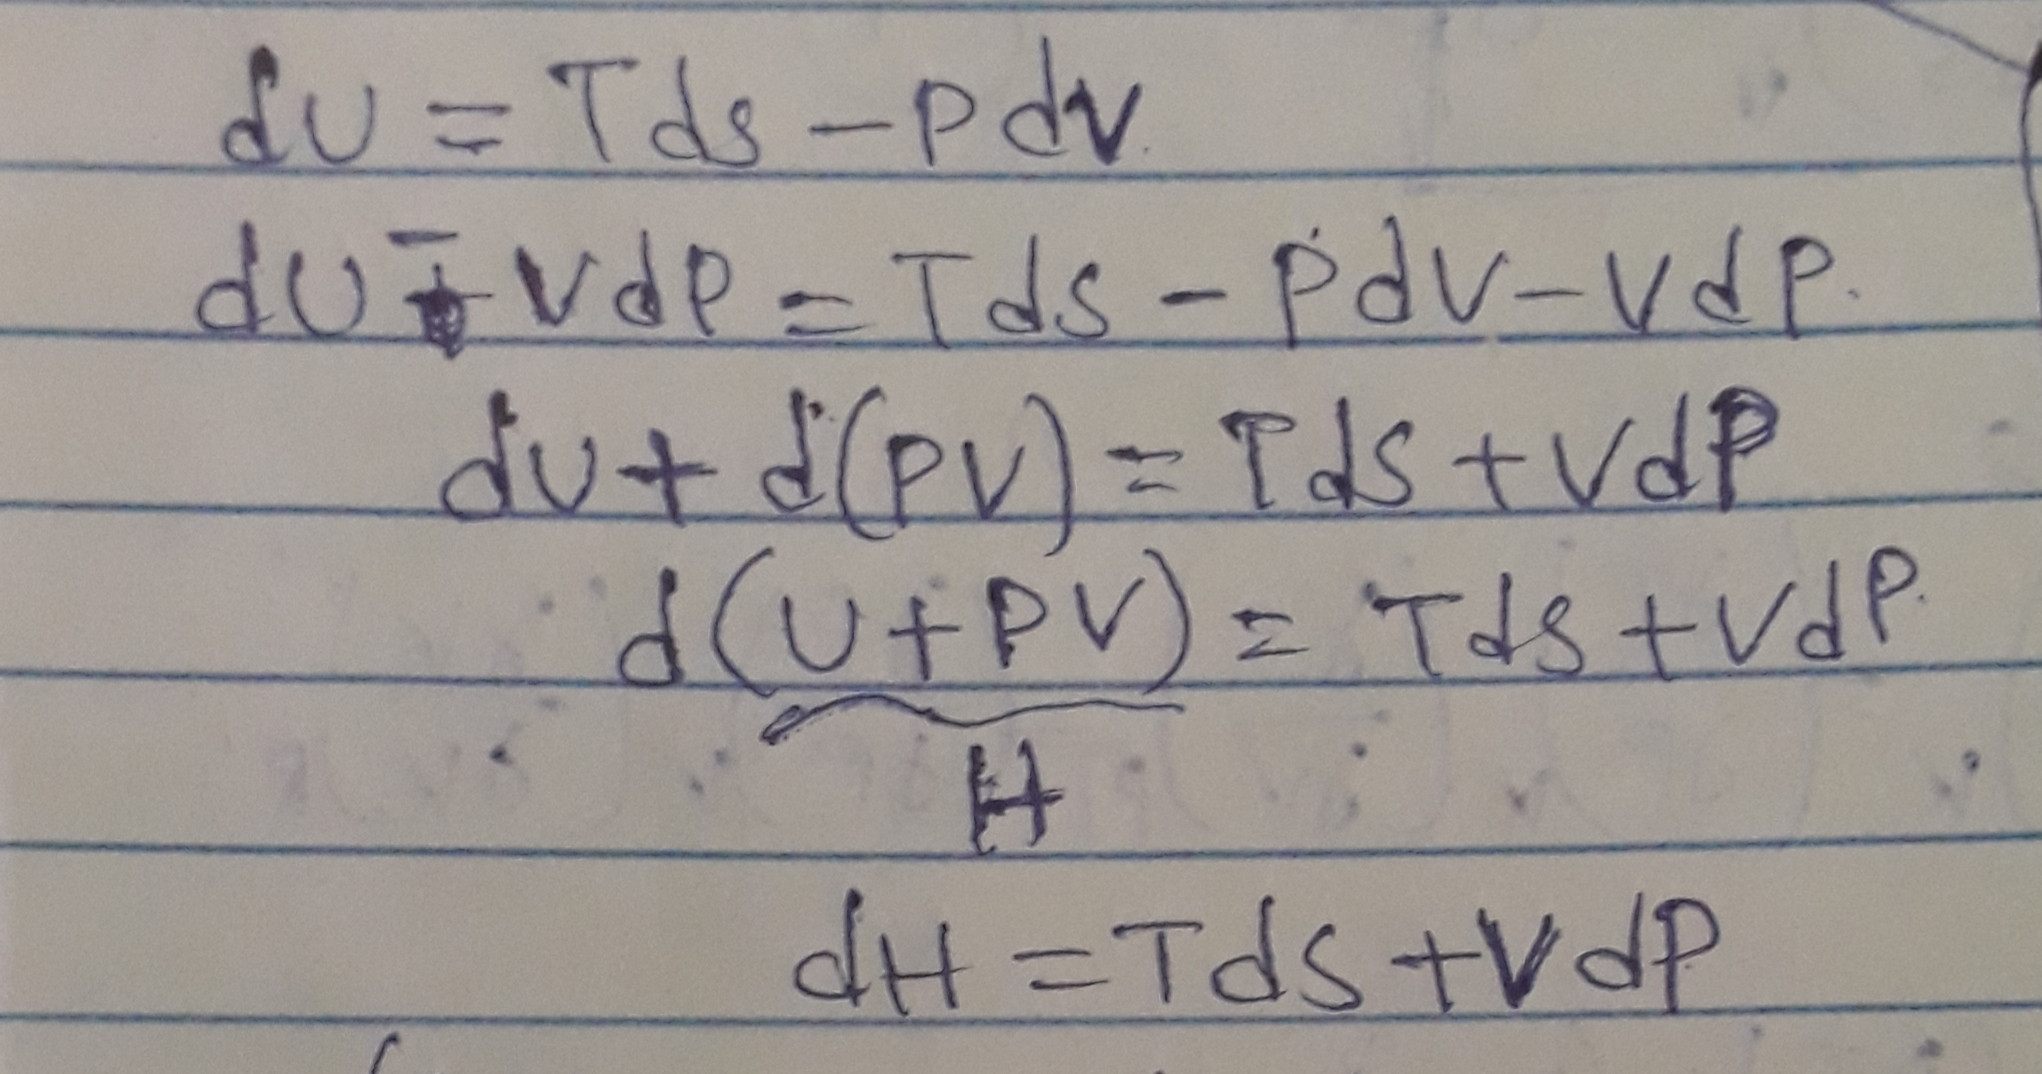 dU = Tds - pdv.
dU - VdP = Tds - PdV - VdP.
dU + d(PV) = TdS + VdP
d(U + PV) = Tds + VdP.
H
dH = TdS + VdP